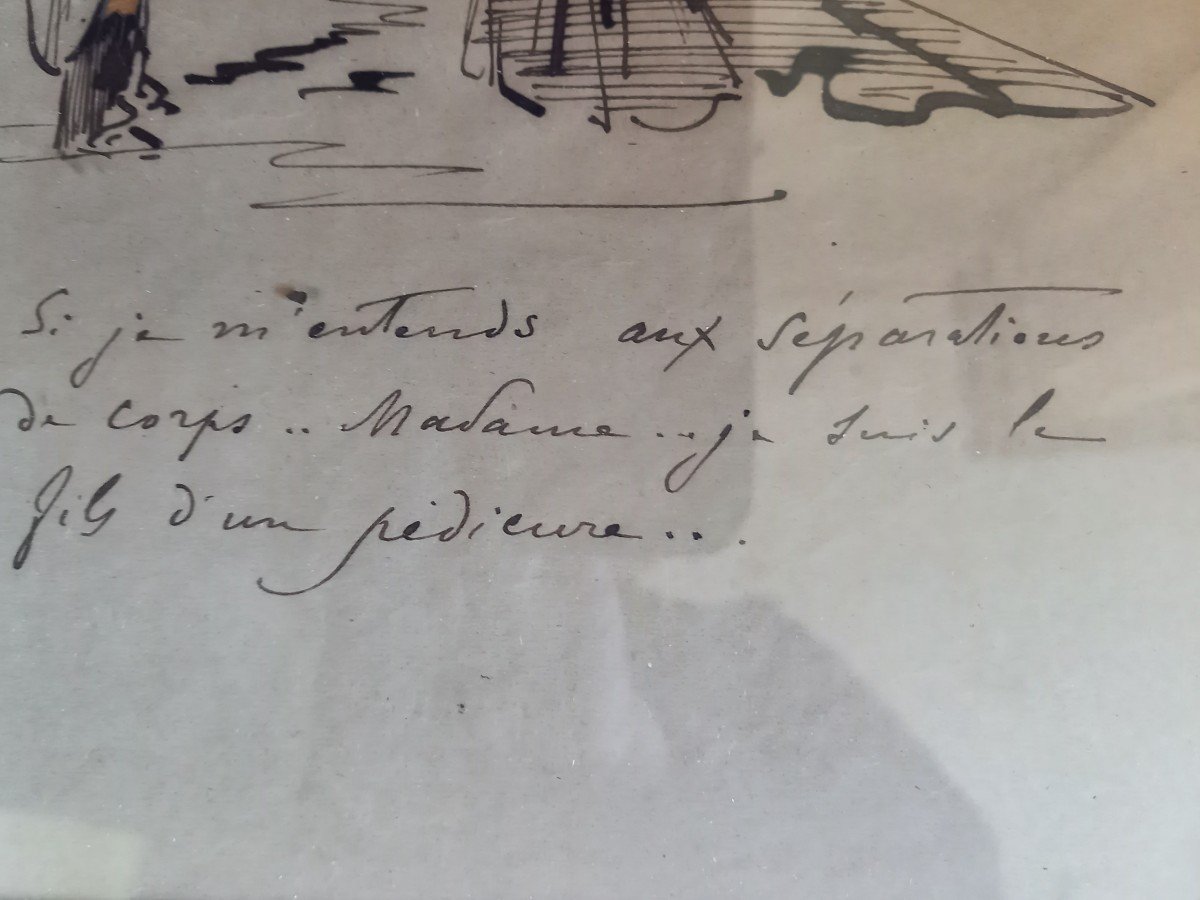 Si je m'entends aux séparations
de corps .. Madame ... je suis le
fils d'un pédicure ...